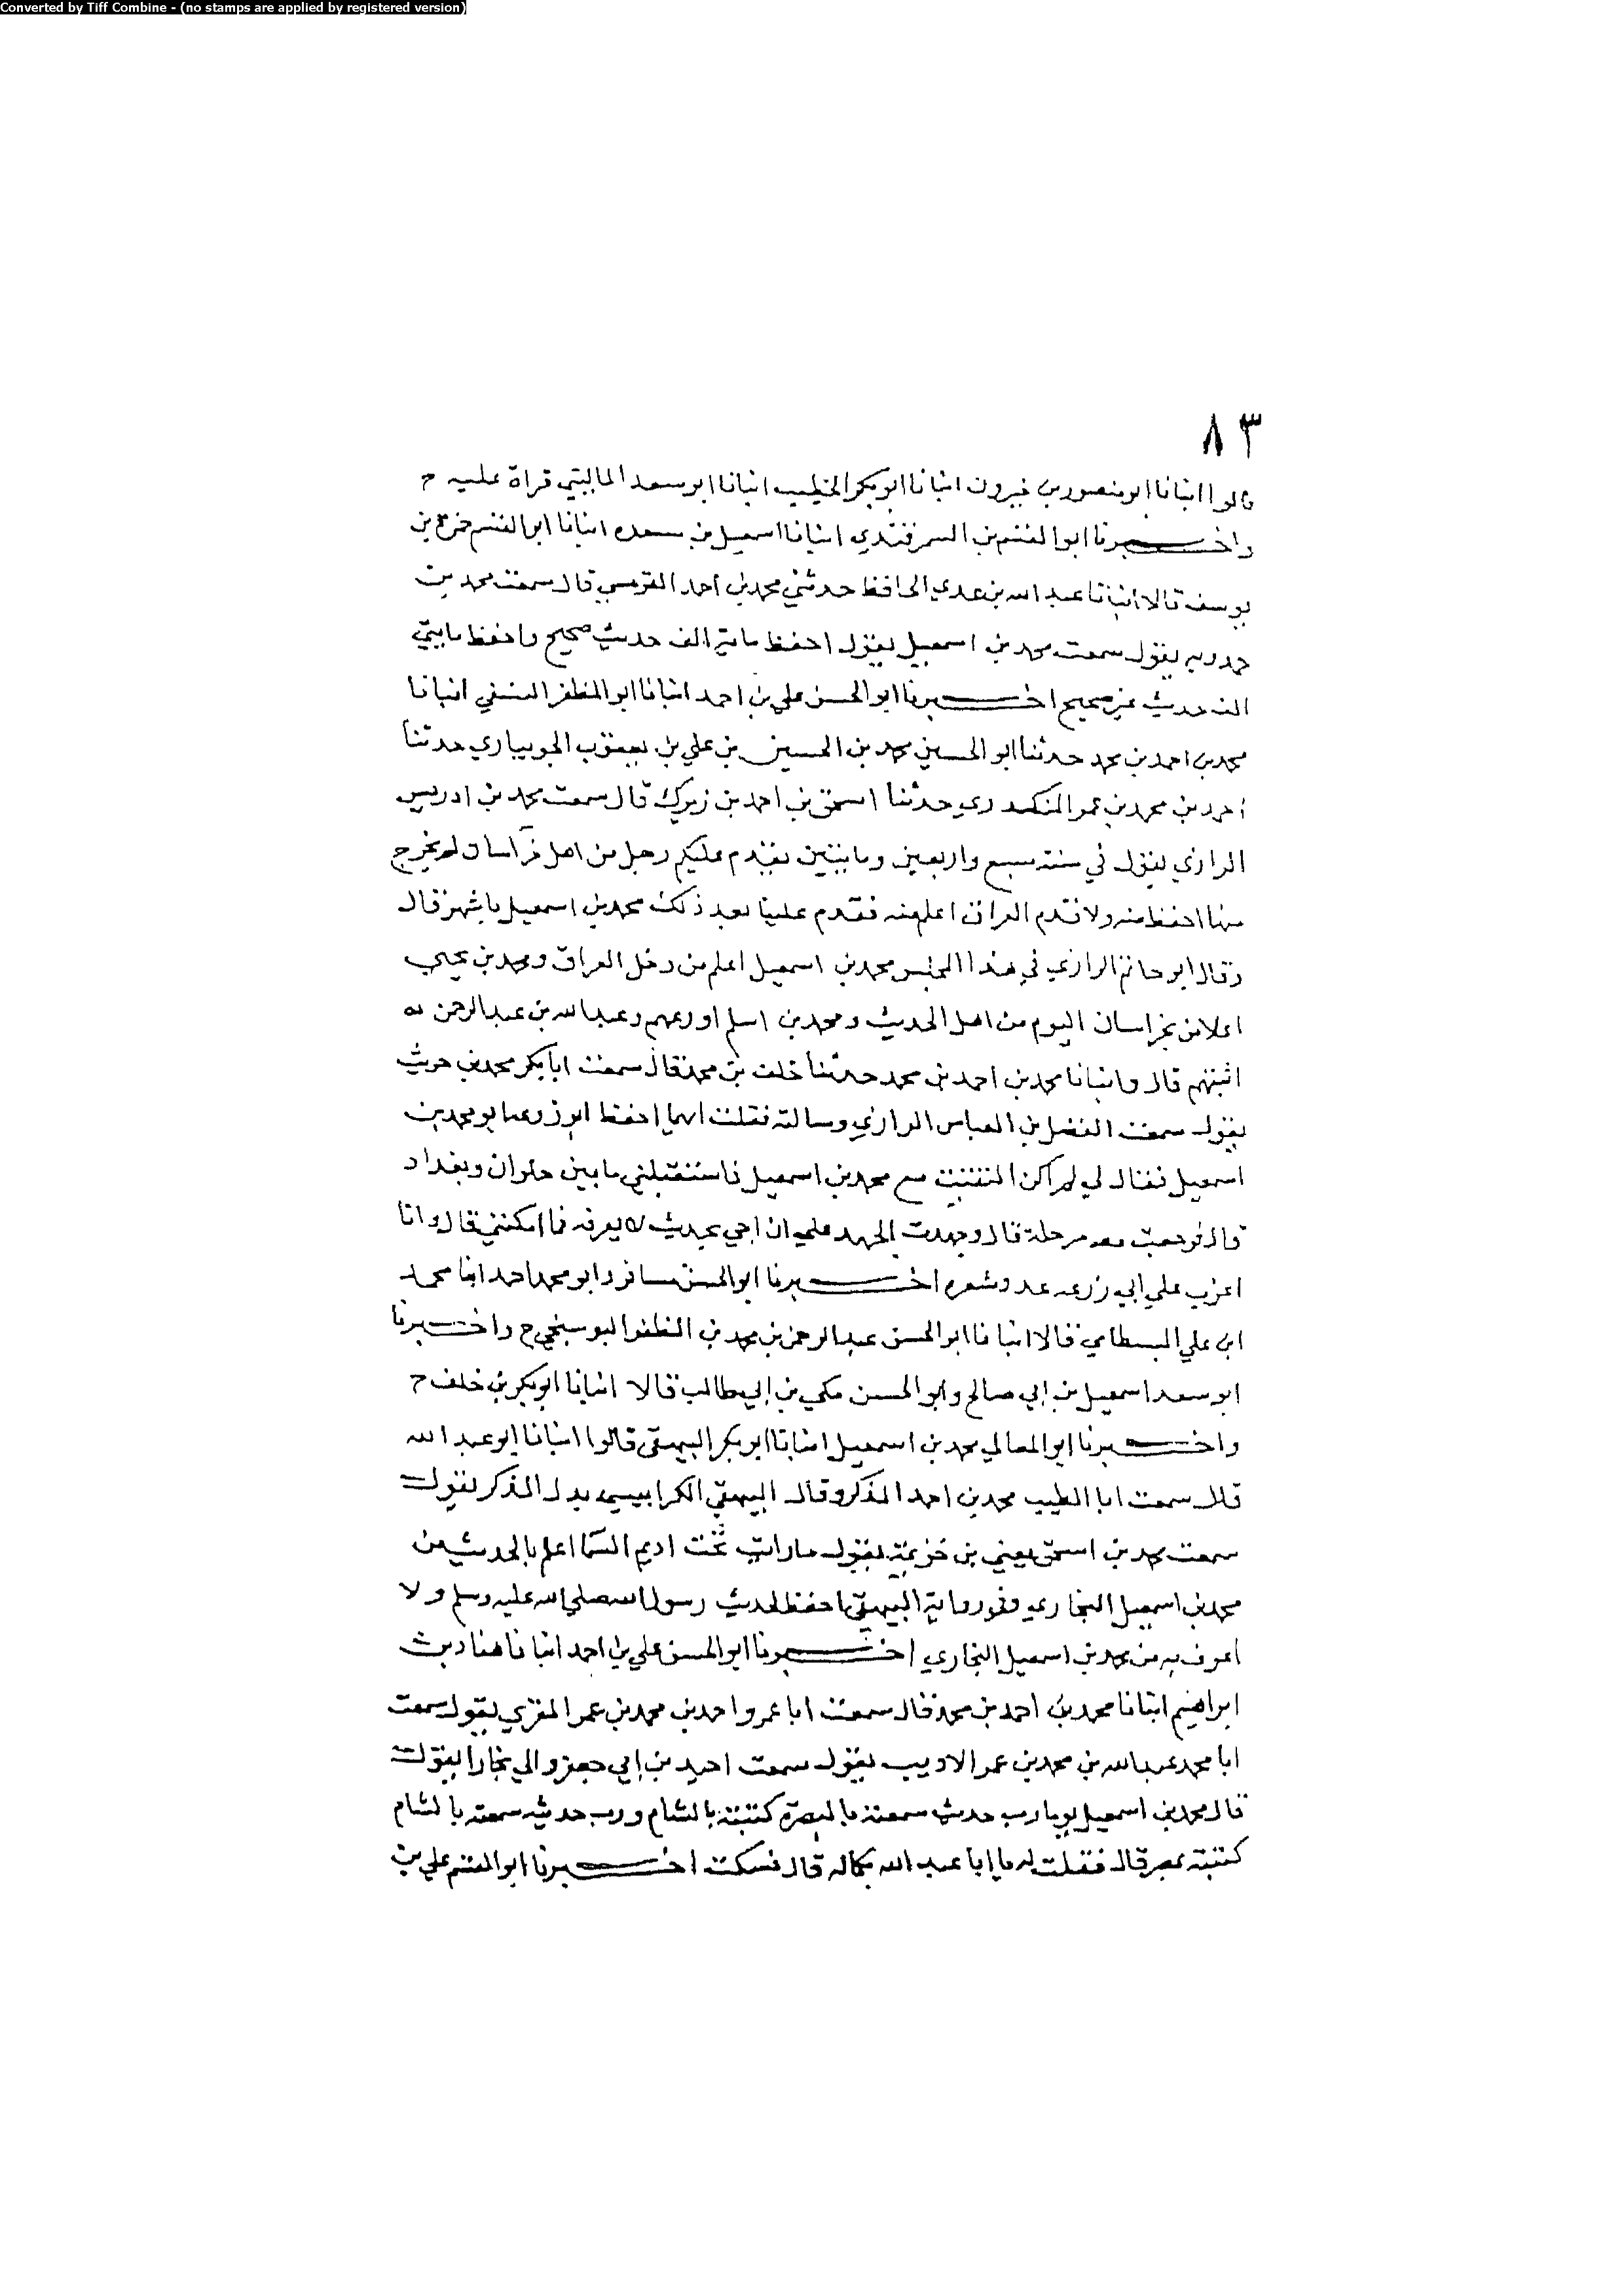 Converted by Tiff Combine - (no stamps are applied by registered version)
٨٣
قالوا انبانا ابو منصور بن خيرون انبانا ابو بكر الخطيب انبانا ابو سعد الماليني قراة عليه ح
واخبرنا ابو القسم بن السمرقندي انبانا اسمعيل بن مسعده انبانا ابو القسم حمزة بن
يوسف قالا انبانا عبد الله بن عدي الحافظ حدثني محمد بن احمد القومسي قال سمعت محمد بن
حمدويه يقول سمعت محمد بن اسمعيل يقول احفظ ماية الف حديث صحيح واحفظ مايتي
الف حديث غير صحيح اخبرنا ابو الحسن علي بن احمد انبانا ابو المظفر النسفي انبانا
محمد بن احمد بن محمد حدثنا ابو الحسين محمد بن الحسين بن علي بن يعقوب الجويباري حدثنا
احمد بن محمد بن عمر المنكدري حدثنا اسحق بن احمد بن زيرك قال سمعت محمد بن ادريس
الرازي يقول في سنة سبع واربعين ومايتين يقدم عليكم رجل من اهل خراسان لم يخرج
منها احفظ منه ولا قدم العراق اعلم منه فقدم علينا بعد ذلك محمد بن اسمعيل باشهر قال
وقال ابو حاتم الرازي في هذا المجلس محمد بن اسمعيل اعلم من دخل العراق ومحمد بن يحيى
اعلا من بخراسان اليوم من اهل الحديث ومحمد بن اسلم اورعهم وعبد الله بن عبد الرحمن
اثبتهم قال وانبانا محمد بن احمد بن محمد حدثنا خلف بن محمد قال سمعت ابا بكر محمد بن حريث
يقول سمعت الفضل بن العباس الرازي وسالته فقلت ايهما احفظ ابو زرعه او محمد بن
اسمعيل فقال لي لم اكن التقيت مع محمد بن اسمعيل فاستقبلني ما بين حلوان وبغداد
قال فرجعت معه مرحلة قال وجهدت الجهد على ان اجي بحديث لا يعرفه فما امكنني قال وانا
اغرب على ابي زرعه عدد شعره اخبرنا ابو الحسن مسافر وابو محمد احمد ابنا محمد
ابن علي البسطامي قالا انبانا ابو الحسن عبد الرحمن بن محمد بن المظفر البوسنجي ح واخبرنا
ابو سعد اسمعيل بن ابي صالح وابو الحسن مكي بن ابي طالب قالا انبانا ابو بكر بن خلف ح
واخبرنا ابو المعالي محمد بن اسمعيل انبانا ابو بكر البيهقي قالوا انبانا ابو عبد الله
قال سمعت ابا الطيب محمد بن احمد المذكر وقال البيهقي الكرابيسي بدل المذكر يقول
سمعت محمد بن اسحق يعني بن خزيمة يقول ما رايت تحت اديم السما اعلم بالحديث من
محمد بن اسمعيل البخاري وفي رواية البيهقي احفظ لحديث رسول الله صلى الله عليه وسلم ولا
اعرف به من محمد بن اسمعيل البخاري اخبرنا ابو الحسن علي بن احمد انبانا هناد بن
ابراهيم انبانا محمد بن احمد بن محمد قال سمعت ابا عمرو احمد بن محمد بن عمر المقري يقول سمعت
ابا محمد عبد الله بن محمد بن عمر الاديب يقول سمعت احيد بن ابي جعفر والي بخارا يقول
قال محمد بن اسمعيل يوما رب حديث سمعته بالبصرة كتبته بالشام ورب حديث سمعته بالشام
كتبته بمصر قال فقلت له يا ابا عبد الله بكماله قال فسكت اخبرنا ابو القسم علي بن